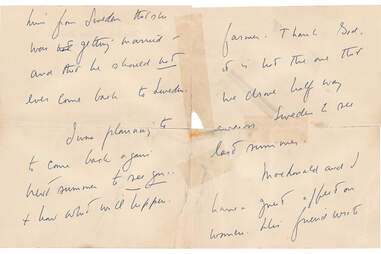 him from Sweden that she
was not getting married –
and that he should not
ever come back to Sweden.
I was planning to
to come back again
next summer to see you..
+ how what will happen.
farmer. Thank God.
it is not the one that
we drove half way
Sweden to see
last summer.
MacDonald and I
have a great effect on
women. His friend wrote